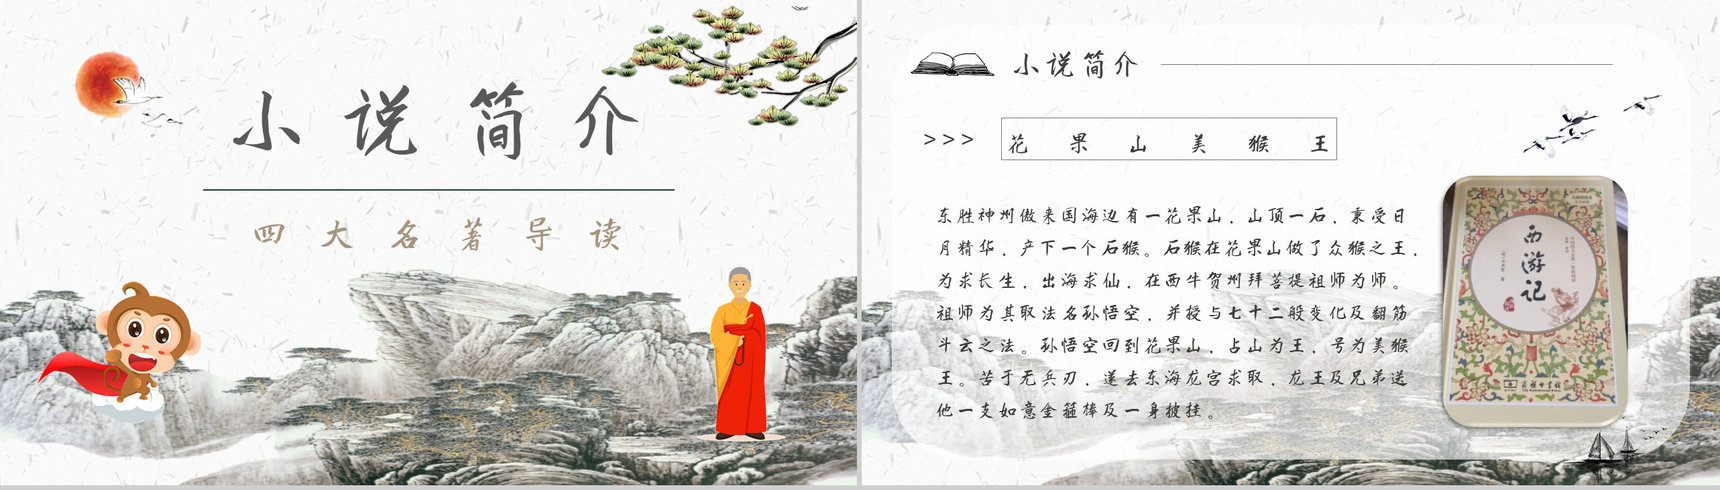 小说简介
四大名著导读
小说简介
>>> 花果山美猴王
东胜神州傲来国海边有一花果山，山顶一石，秉受日
月精华，产下一个石猴。石猴在花果山做了众猴之王，
为求长生，出海求仙，在西牛贺州拜菩提祖师为师。
祖师为其取法名孙悟空，并授与七十二般变化及翻筋
斗云之法。孙悟空回到花果山，占山为王，号为美猴
王。苦于无兵刃，遂去东海龙宫求取，龙王及兄弟送
他一支如意金箍棒及一身披挂。
西游记
商务印书馆